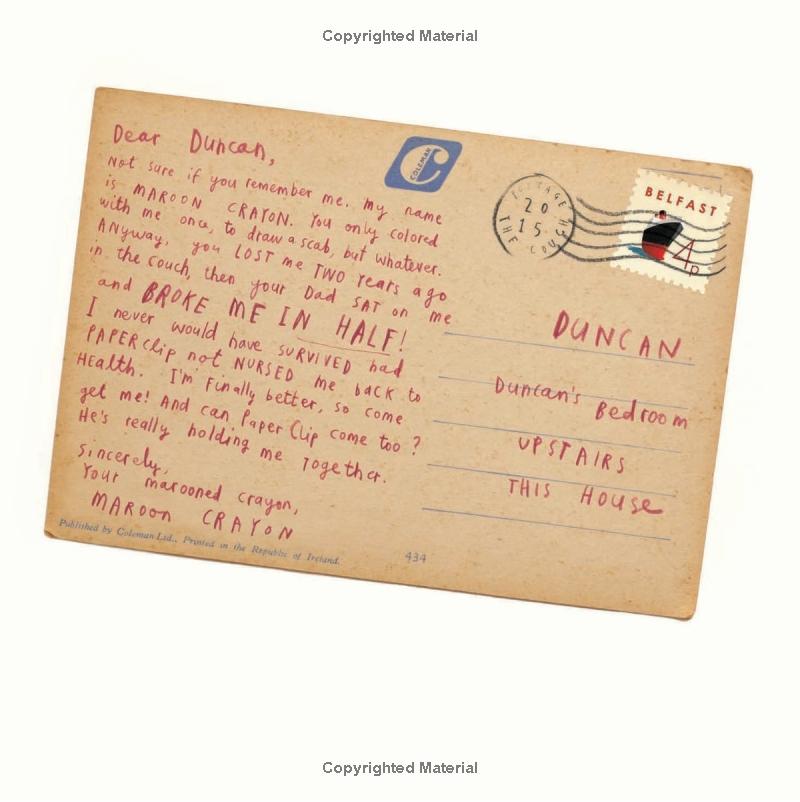 Copyrighted Material
Dear Duncan,
Not sure if you remember me. My name
is MAROON CRAYON. You only colored
with me once, to draw a scab, but whatever.
ANyway, you LOST me TWO Years ago
in the couch, then your Dad SAT on me
and BROKE ME IN HALF!
I never would have SURVIVED had
PAPERclip not NURSED me back to
Health. I'm Finally better, so come
get me! And can Paper Clip come too?
He's really holding me Together.
Sincerely,
Your marooned crayon,
MAROON CRAYON
Published by Coleman Ltd., Printed in the Republic of Ireland.
434
COLEMAN
C
20
15
THE COUCH
BELFAST
4p
DUNCAN
Duncan's Bedroom
UPSTAIRS
THIS HOUSE
Copyrighted Material